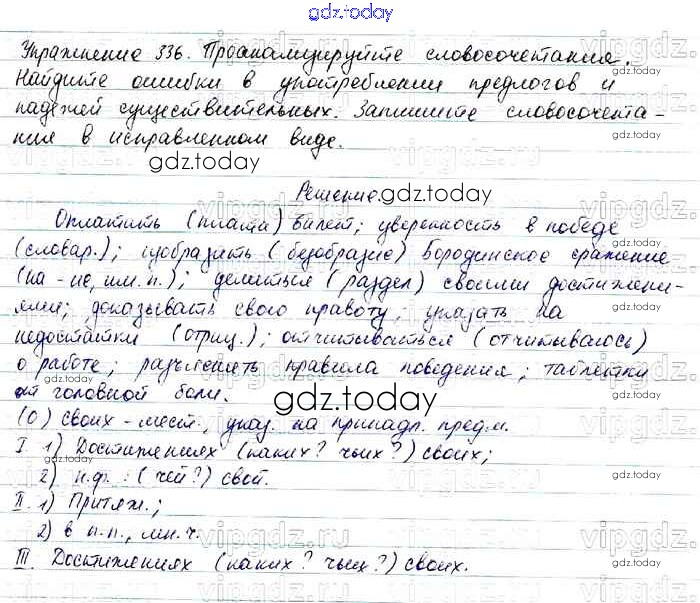 gdz.today
Упражнение 336. Проанализируйте словосочетания.
Найдите ошибки в употреблении предлогов и
падежей существительных. Запишите словосочета-
ния в исправленном виде.
gdz.today
Решение.
gdz.today
Оплатить (плата) билет; уверенность в победе
(словар.); изобразить (безобразие) Бородинское сражение
(на -ие, им. п.); делиться (раздел) своими достижени-
ями; доказывать свою правоту; указать на
недостатки (отриц.); отчитываться (отчитываюсь)
о работе; разъяснять правила поведения; таблетки
от головной боли.
gdz.today
(О) своих - мест., указ. на принадл. предм.
I. 1) Достижениях (каких? чьих?) своих;
2) н.ф.: (чей?) свой.
II. 1) Притяж.;
2) в п.п., мн.ч.
III. Достижениях (каких? чьих?) своих.